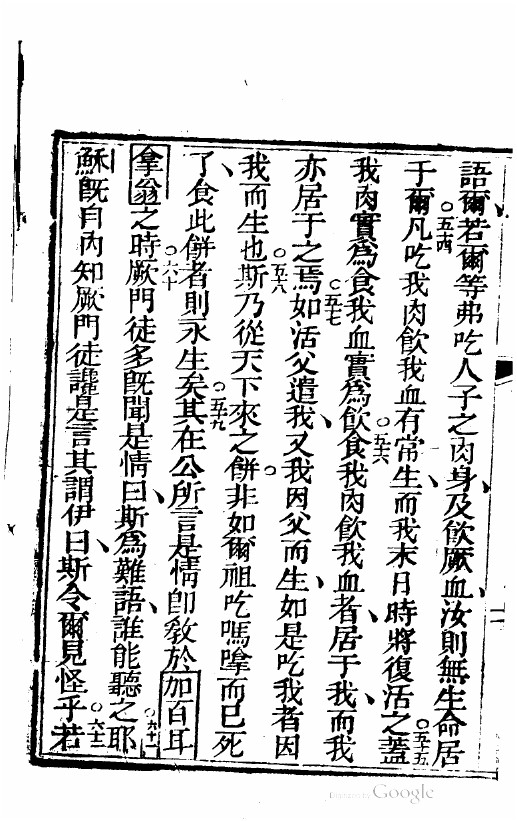 語爾若爾等弗吃人子之肉身及飲厥血汝則無生命居
于爾○五四凡吃我肉飲我血有常生而我末日時將復活之○五五蓋
我肉實爲食我血實爲飲○五六食我肉飲我血者居于我而我
亦居于之焉○五七如活父遣我又我因父而生如是吃我者因
我而生也○五八斯乃從天下來之餅非如爾祖吃嗎㗱而已死
了食此餅者則永生矣○五九其在公所言是情卽敎於加百耳
拿翁之時○六十厥門徒多旣聞是情曰斯爲難語誰能聽之耶○六十一
穌旣自內知厥門徒讙是言其謂伊曰斯令爾見怪乎○六十二若
Digitized by Google